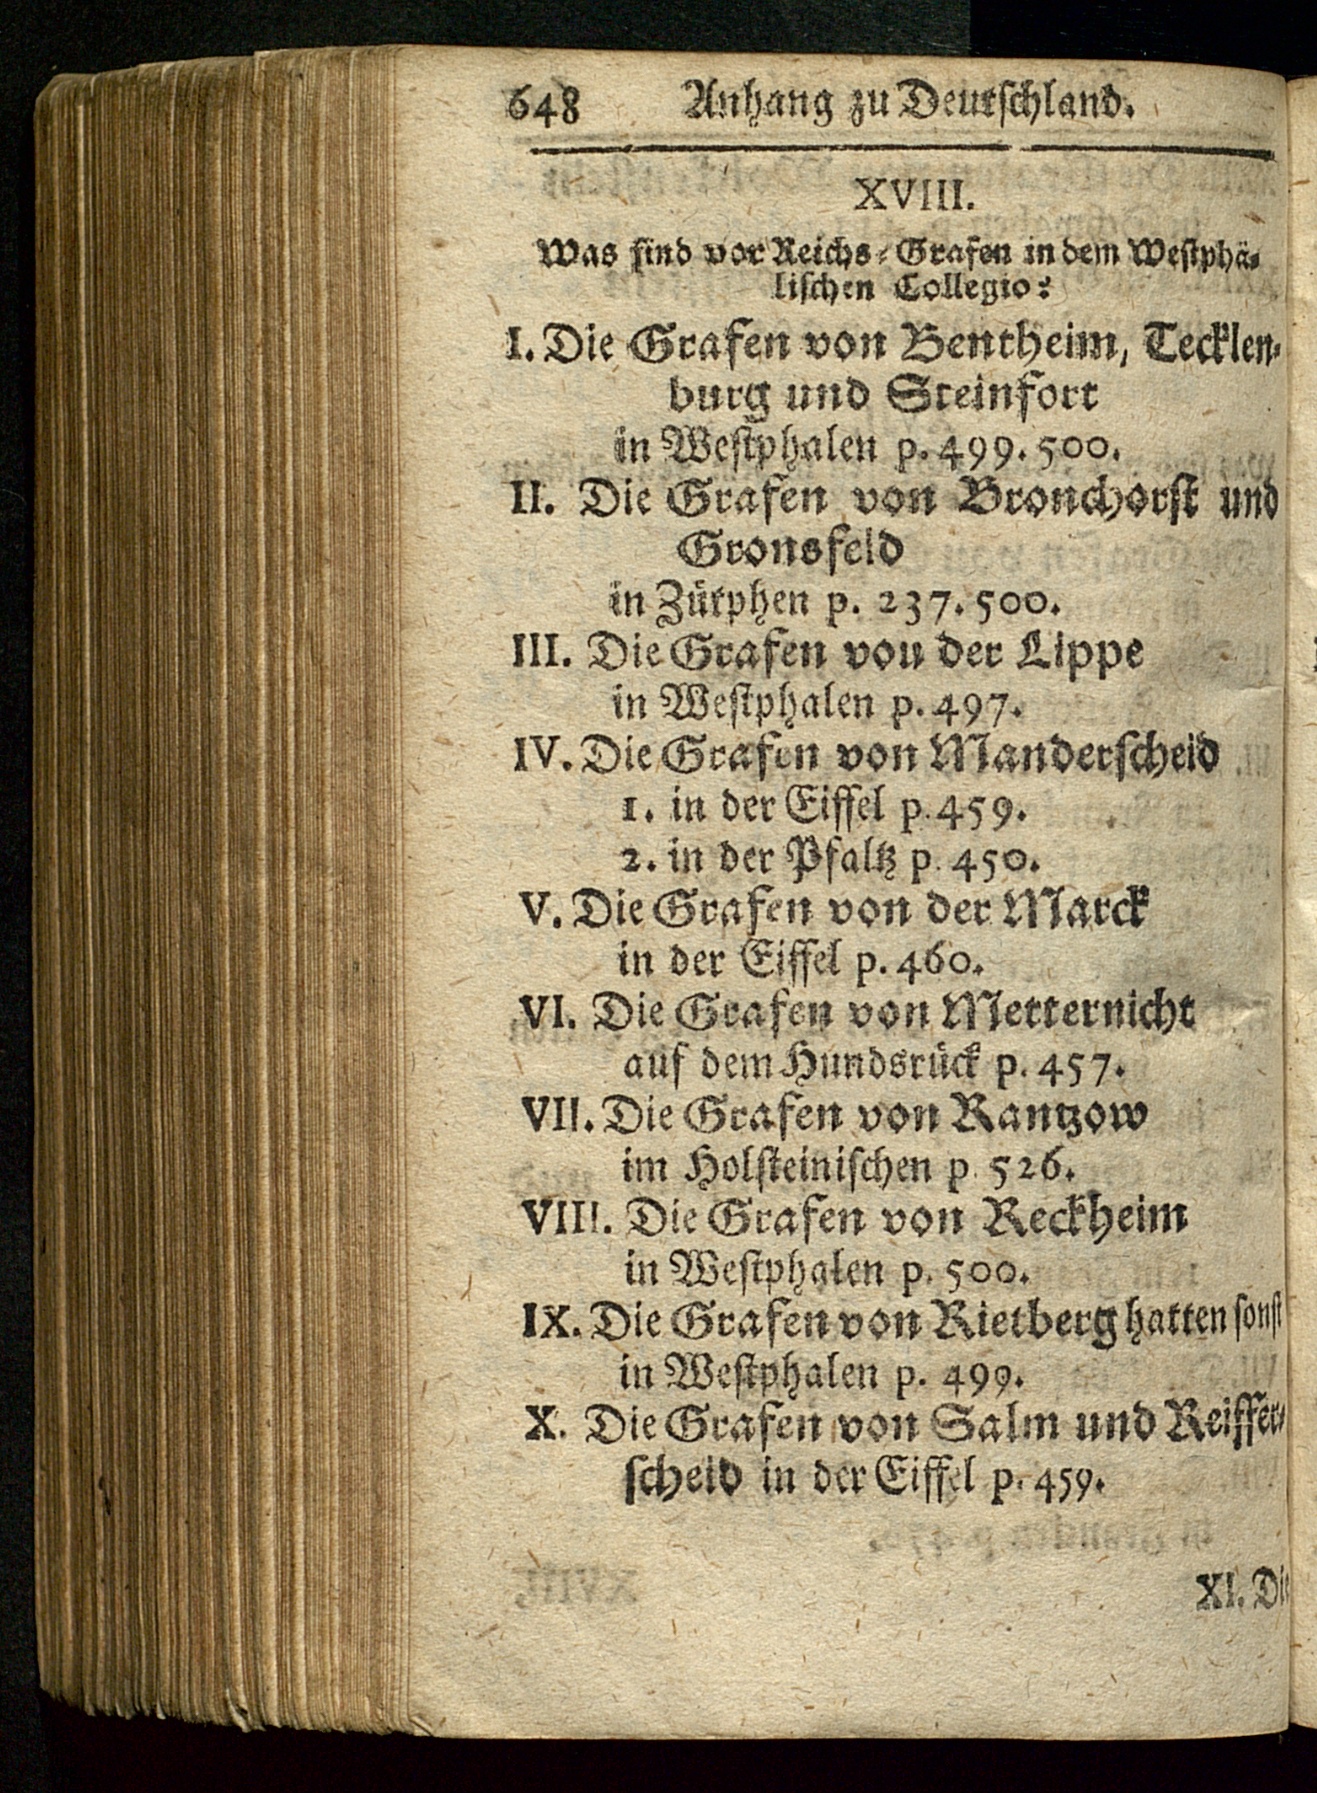 648 Anhang zu Deutschland.
XVIII.
Was sind vor Reichs-Grafen in dem Westphä-
lischen Collegio?
I. Die Grafen von Bentheim, Tecklen-
burg und Steinfort
in Westphalen p. 499. 500.
II. Die Grafen von Bronchorst und
Gronsfeld
in Zütphen p. 237. 500.
III. Die Grafen von der Lippe
in Westphalen p. 497.
IV. Die Grafen von Manderscheid
1. in der Eiffel p. 459.
2. in der Pfaltz p. 450.
V. Die Grafen von der Marck
in der Eiffel p. 460.
VI. Die Grafen von Metternicht
auf dem Hundsrück p. 457.
VII. Die Grafen von Rantzow
im Holsteinischen p. 526.
VIII. Die Grafen von Reckheim
in Westphalen p. 500.
IX. Die Grafen von Rietberg hatten sonst
in Westphalen p. 499.
X. Die Grafen von Salm und Reiffer-
scheid in der Eiffel p. 459.
XI. Die